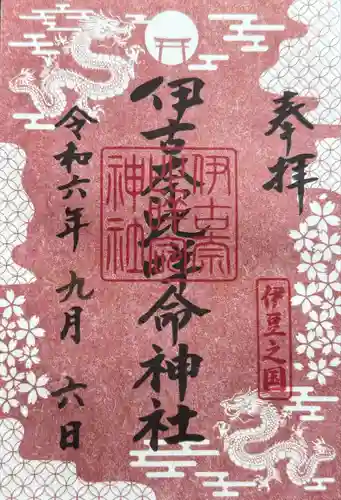 奉拝
伊豆之国
伊古奈比咩命神社
伊古奈
比咩命
神社
令和六年 九月 六日